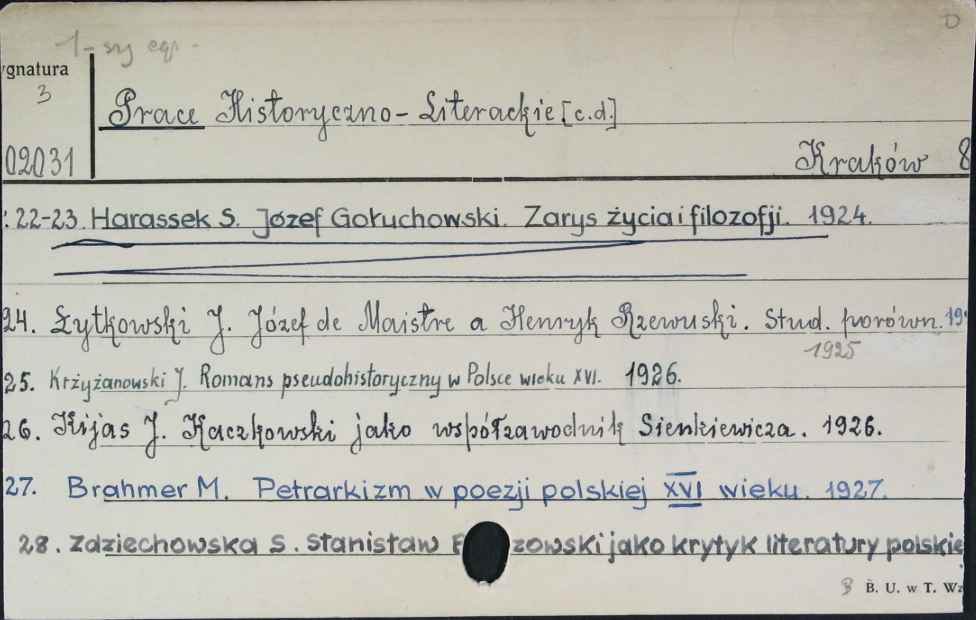 D
1-szy egz.
ygnatura
3
Prace Historyczno-Literackie [c.d.]
02031
Kraków 8
: 22-23. Harassek S. Józef Gołuchowski. Zarys życia i filozofji. 1924.
24. Żytkowski J. Józef de Maistre a Henryk Rzewuski. Stud. porówn. 19
1925
25. Krżyżanowski J. Romans pseudohistoryczny w Polsce wieku XVI. 1926.
26. Kijas J. Kaczkowski jako współzawodnik Sienkiewicza. 1926.
27. Brahmer M. Petrarkizm w poezji polskiej XVI wieku. 1927.
28. Zdziechowska S. Stanisław zowski jako krytyk literatury polskie
B. U. w T. Wz